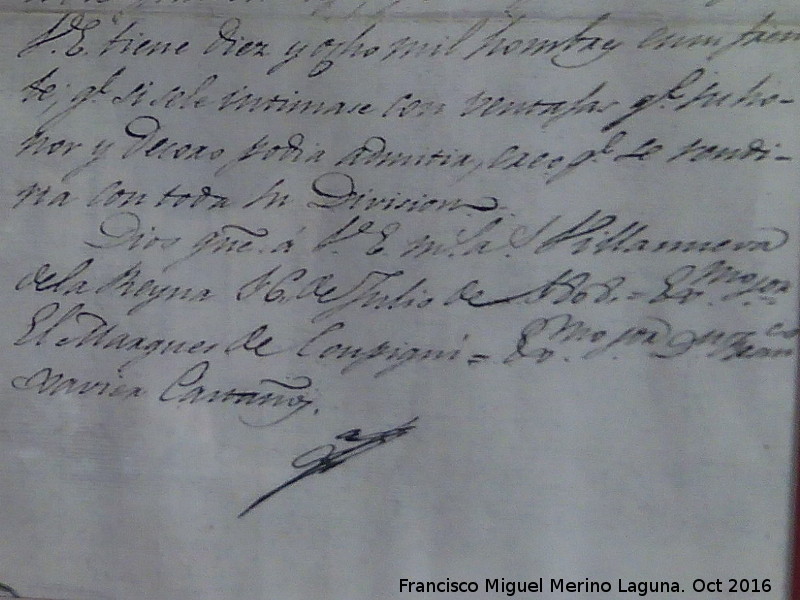 V.E. tiene diez y ocho mil hombres en su fren-
te, q.e si se le intimase con ventajas q.e su ho-
nor y Decoro podia admitir, creo q.e se rendi-
ria con toda su Division.
Dios gue. á V.E. m.s a.s Villanueva
de la Reyna 16 de Julio de 1808. = Ex.mo sor
El Marques de Coupigni = Ex.mo sor Dn Fran.co
Xavier Castaños.
Francisco Miguel Merino Laguna. Oct 2016